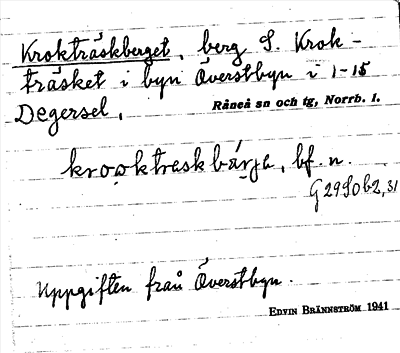 Krokträskberget, berg S. Krok-
träsket i byn Överstbyn i 1-15
Degersel.
Råneå sn och tg, Norrb. l.
krooktraskbärja, bf. n.
G 29S0b2,31
Uppgiften från Överstbyn.
EDVIN BRÄNNSTRÖM 1941